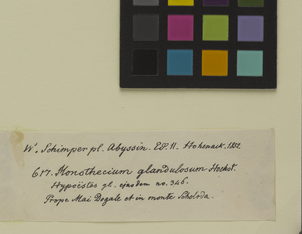 W. Schimper pl. Abyssin. Ed. II. Hohenack. 1852
617. Monothecium glandulosum Hochst.
Hypoëstes gl. ejusdem no. 346.
Prope Mai Dogale et in monte Scholoda.